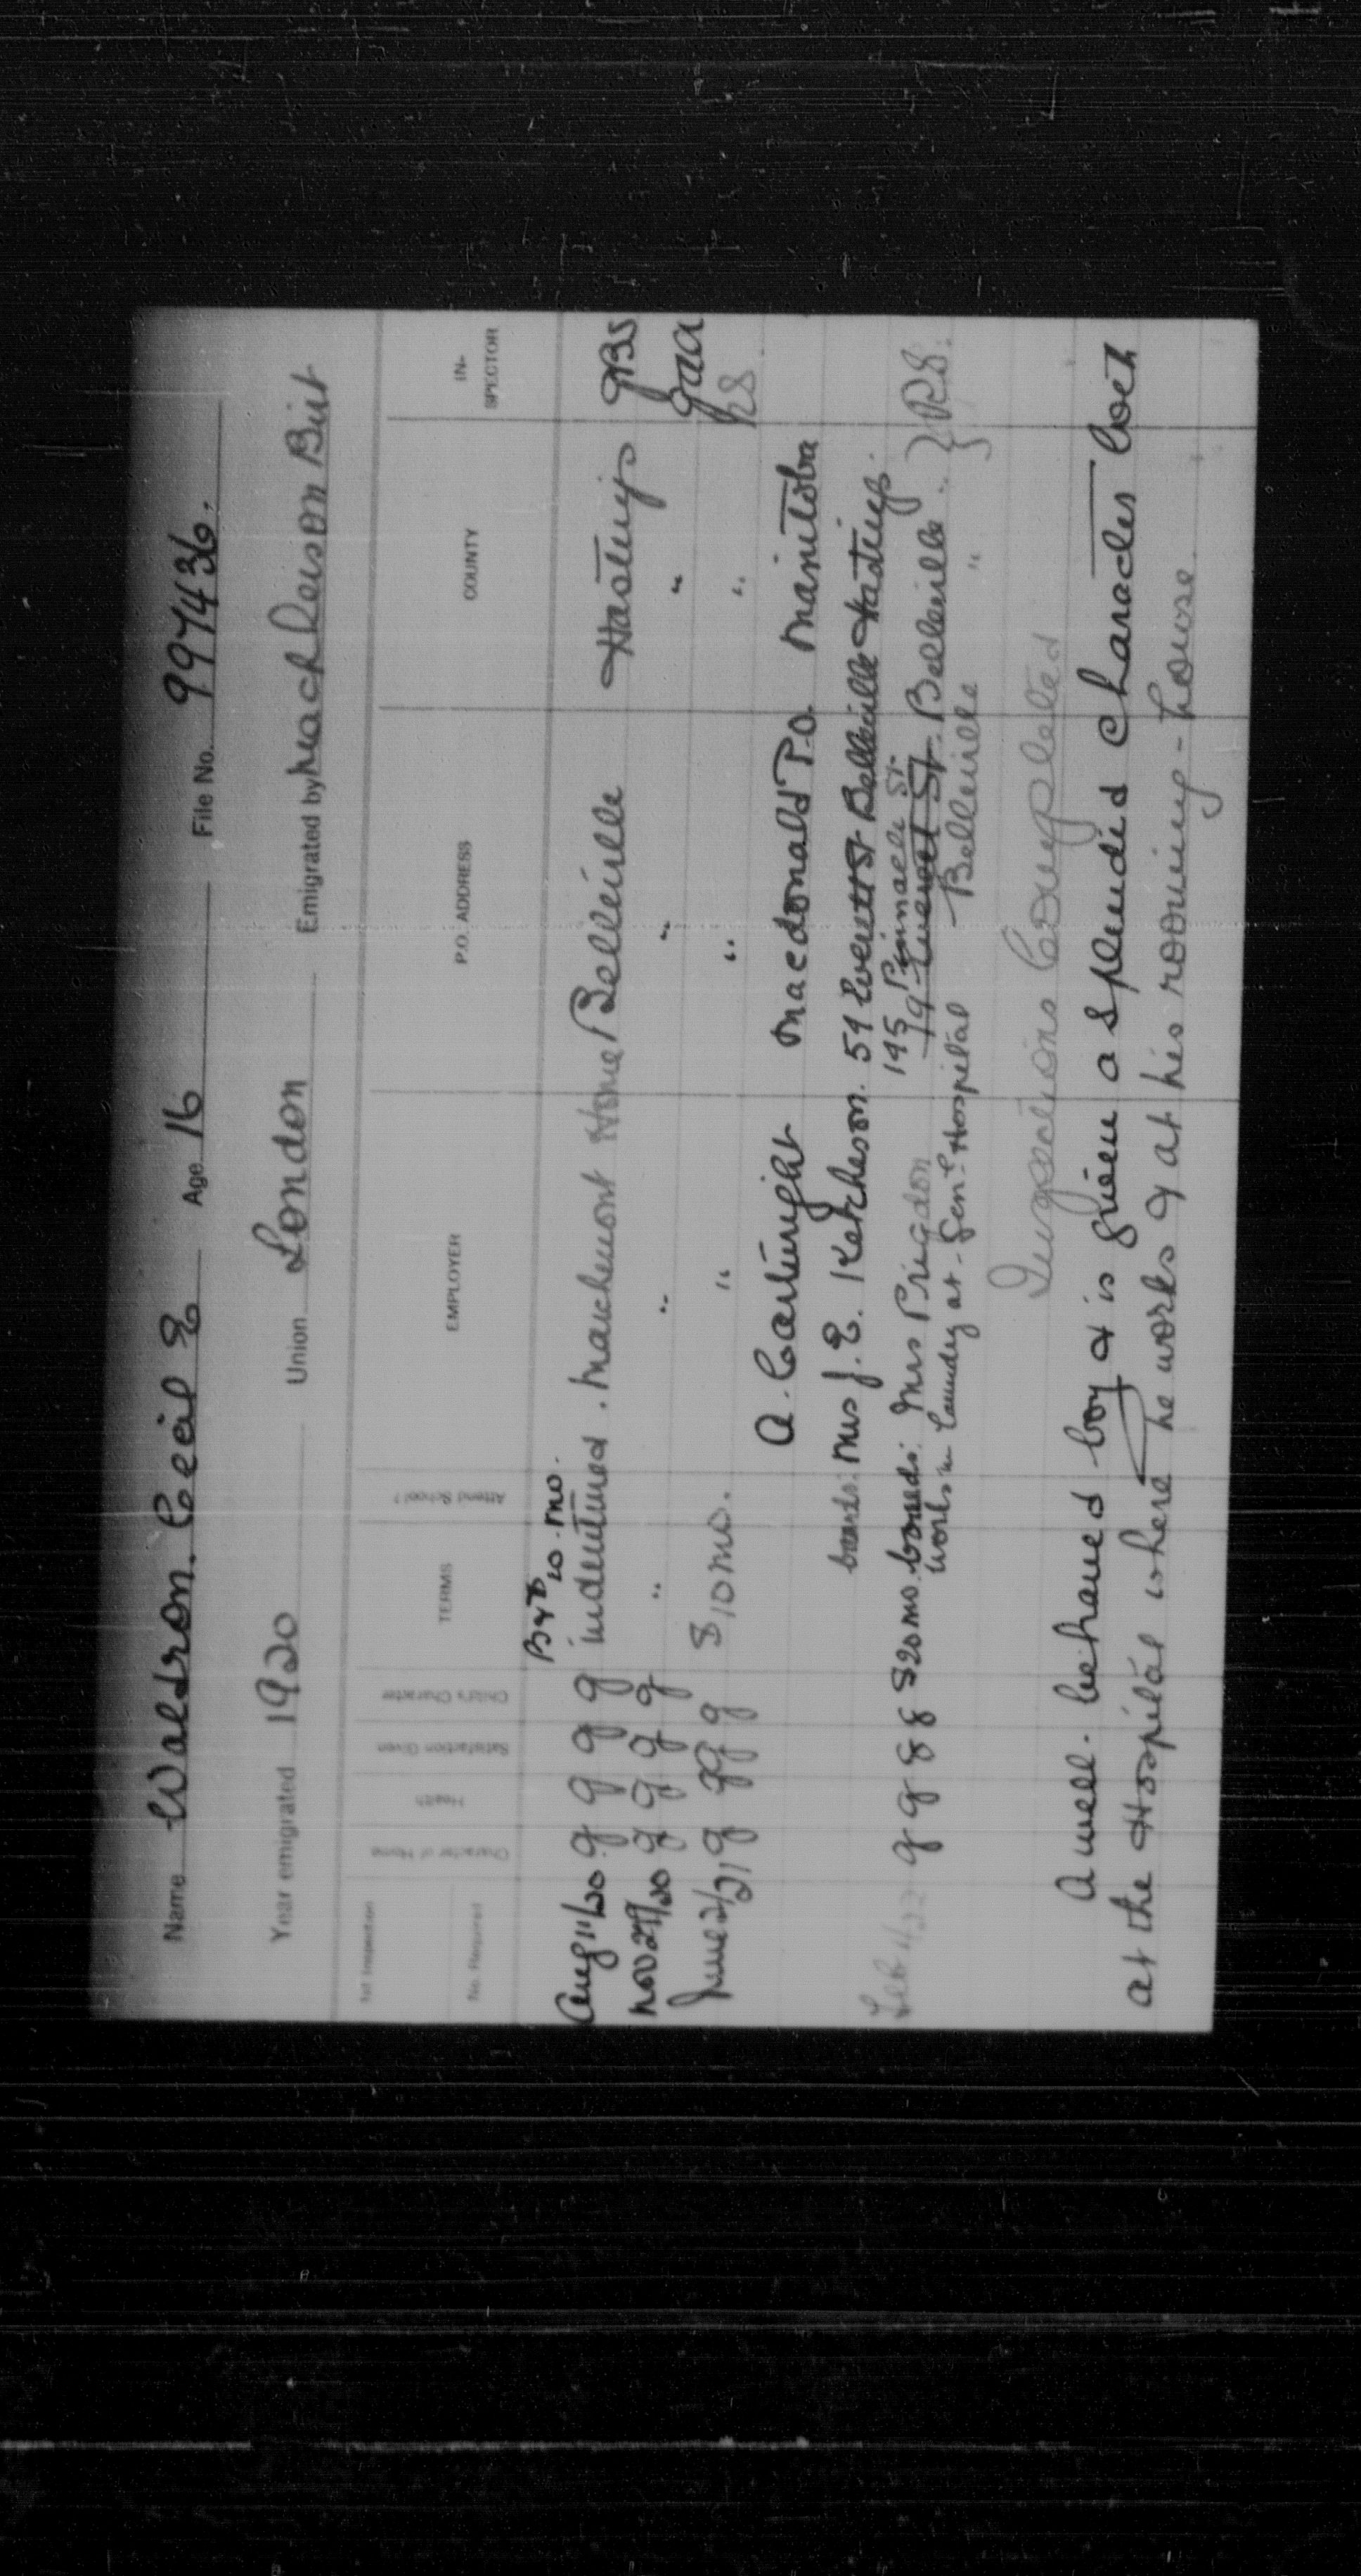 Name Waldron. Cecil E Age 16 File No. 997436.
Year emigrated 1920 Union London Emigrated by
1st Inspection
No. Required
Character of Home
Health
Satisfaction Given
Child's Character
TERMS
Attend School?
EMPLOYER
P.O. ADDRESS
COUNTY
IN-SPECTOR
10 mo.
Aug 11/20 g g g g indentured. Marchmont Home Belleville Hastings
Nov 29/20 g g g g " " " "
June 2/21 g g g g $10 mo. " " "
A. Cartwright Macdonald P.O. Manitoba
boards: Mrs J. E. Ketcheson. 59 Everett St Belleville Hastings.
195 Pinnacle St
Feb /22 g g g g $20 mo. boards: Mrs Prigdon St. Belleville " } RS.
works in laundry at Gen'l Hospital Belleville "
Inspections Completed
A well-behaved boy & is given a splendid character both
at the Hospital where he works & at his rooming-house